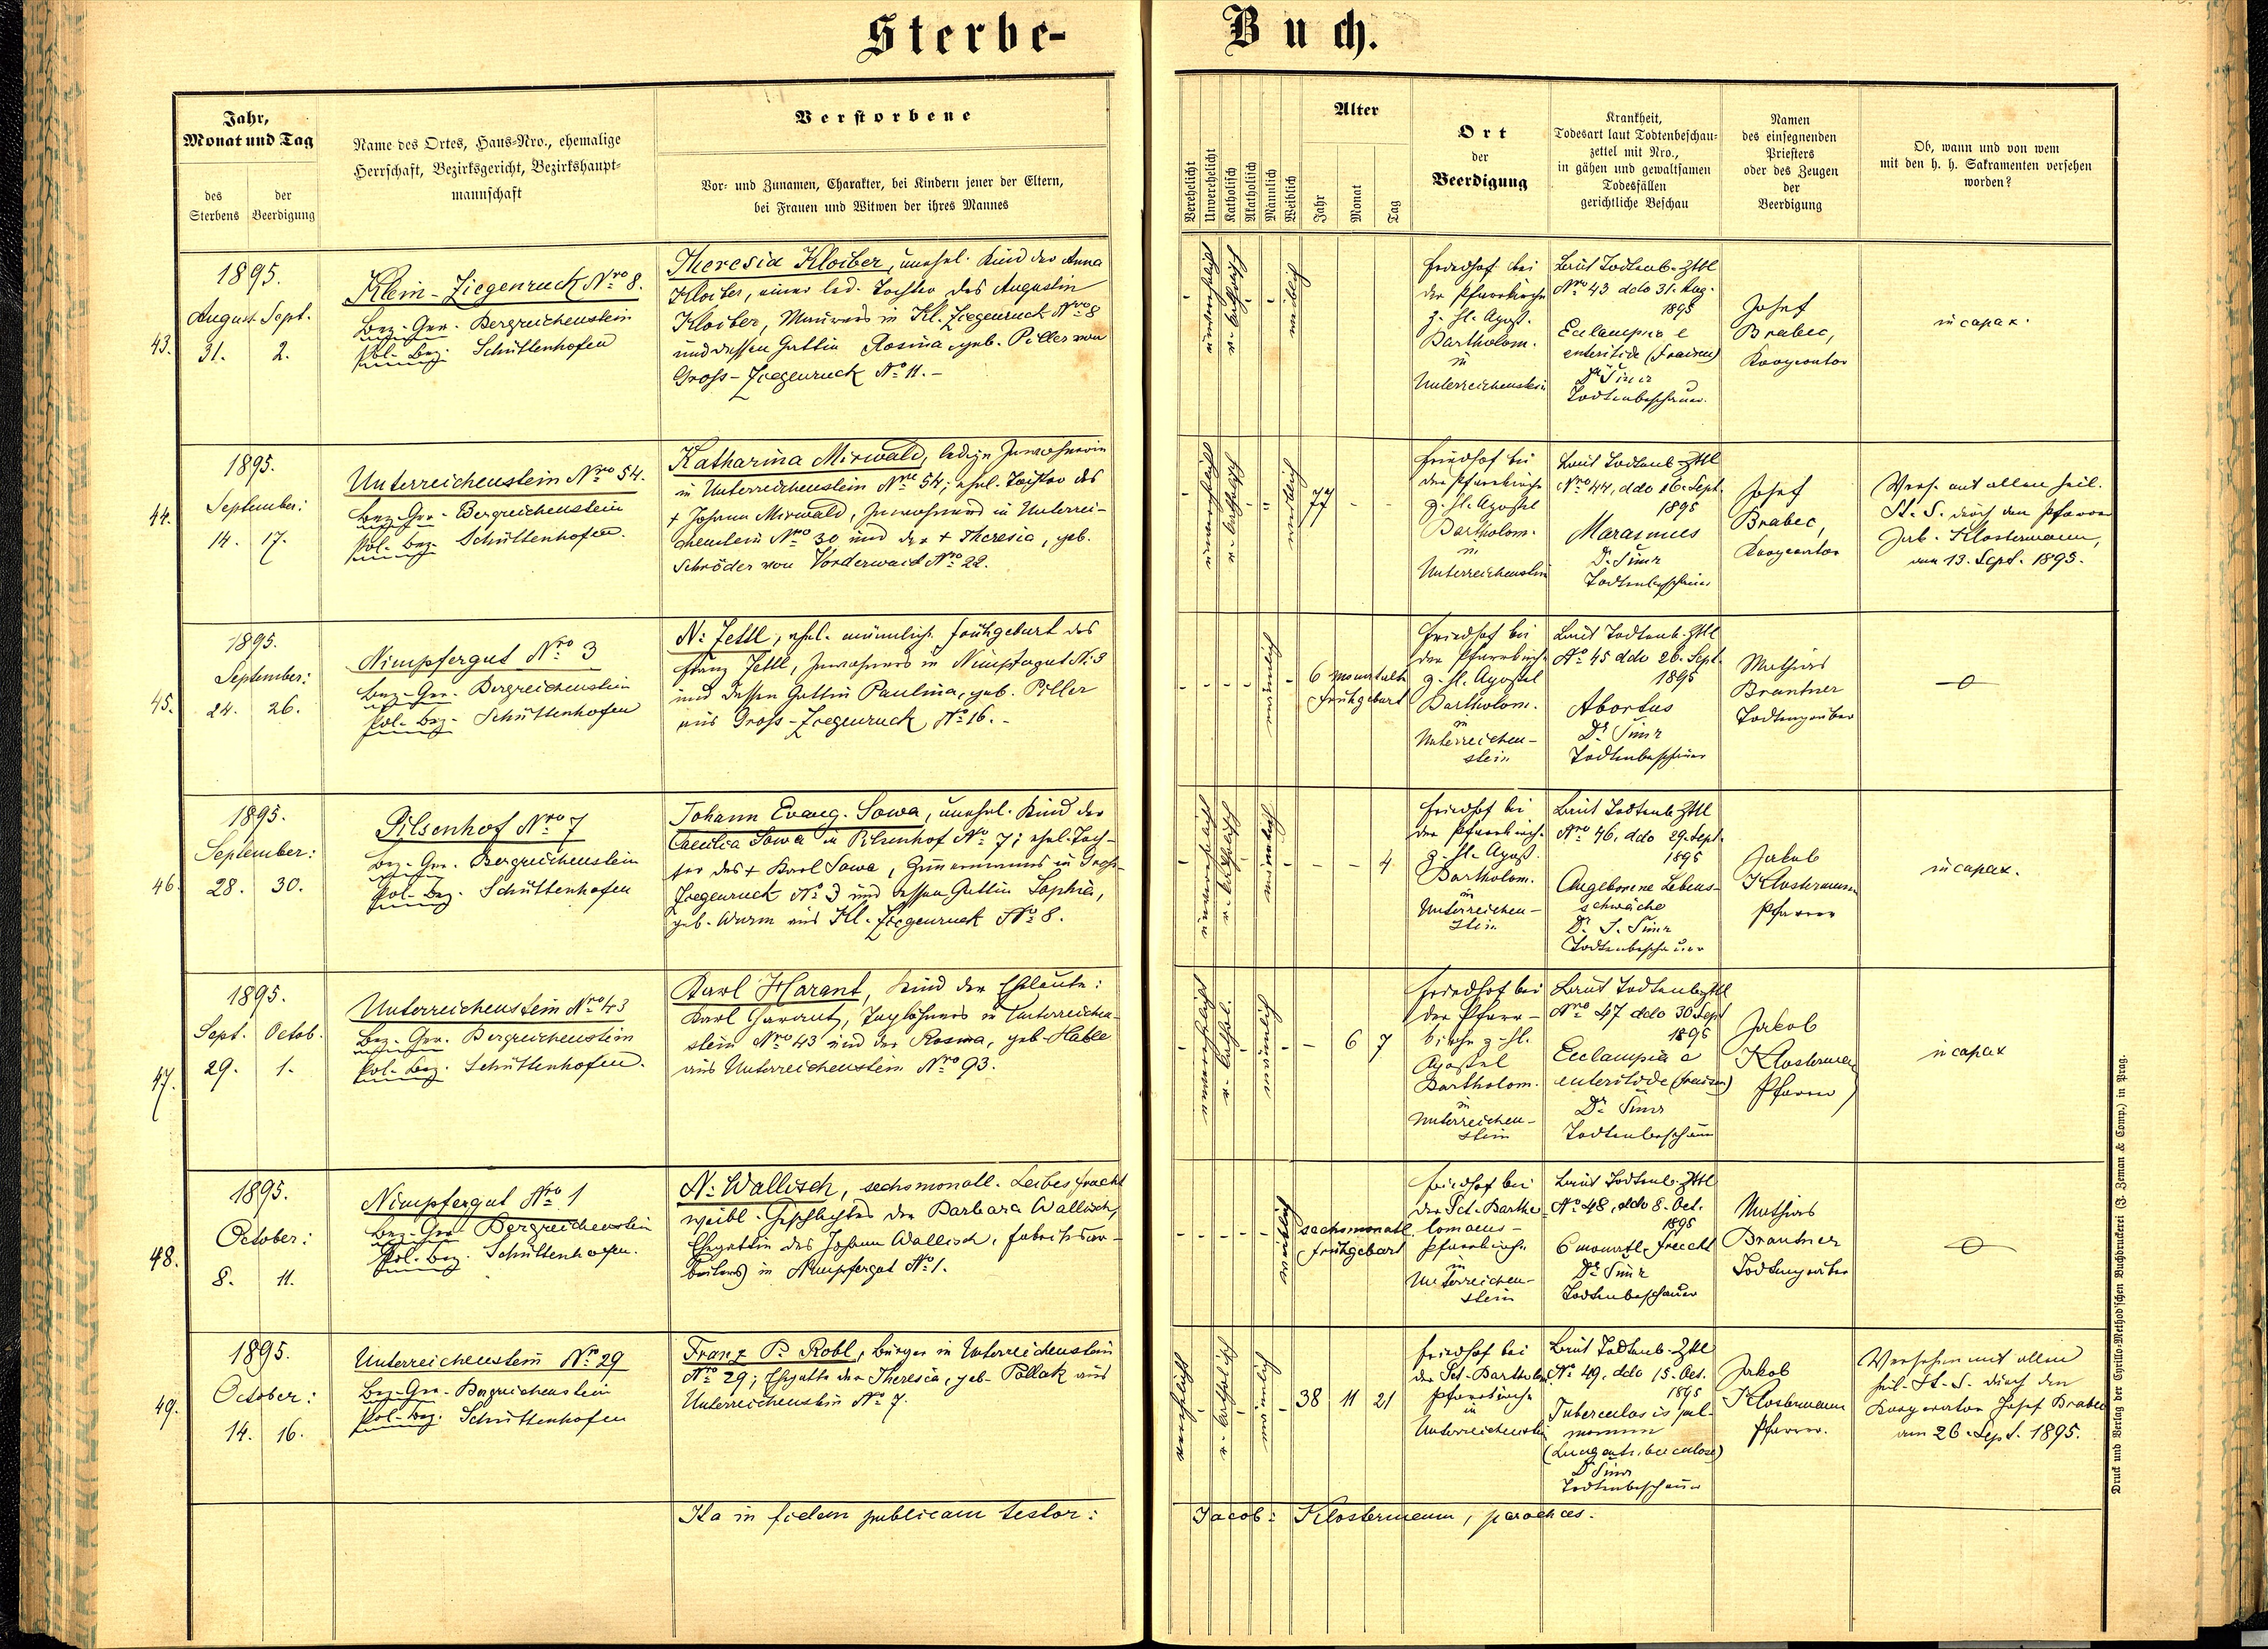 Sterbe-
Buch.
Jahr,
Monat und Tag
des Sterbens
der Beerdigung
Name des Ortes, Haus-Nro., ehemalige
Herrschaft, Bezirksgericht, Bezirkshaupt-
mannschaft
Verstorbene
Vor- und Zunamen, Charakter, bei Kindern jener der Eltern,
bei Frauen und Witwen der ihres Mannes
Verehelicht
Unverehelicht
Katholisch
Akatholisch
Männlich
Weiblich
Alter
Jahr
Monat
Tag
Ort
der
Beerdigung
Krankheit,
Todesart laut Todtenbeschau-
zettel mit Nro.,
in gähen und gewaltsamen
Todesfällen
gerichtliche Beschau
Namen
des einsegnenden
Priesters
oder des Zeugen
der
Beerdigung
Ob, wann und von wem
mit den h. h. Sakramenten versehen
worden?
43.
1895.
August Sept.
31. 2.
Klein-Ziegenruck Nro 8.
Bez-Ger. Bergreichenstein
Pol-Bez. Schüttenhofen
Theresia Kloiber, unehel. Kind der Anna
Kloiber, einer led. Tochter des Augustin
Kloiber, Maurers in Kl. Ziegenruck Nro 8
und dessen Gattin Rosina geb. Piller von
Gross-Ziegenruck No 11.-
unverehelicht
r. katholisch
weiblich
Friedhof bei
der Pfarrkirche
z. hl. Apost.
Bartholom.
in
Unterreichenstein
Laut Todtenb-Zttl
Nro 43 ddo 31. Aug.
1895
Eclampsia e
enteritide (Fraisen)
Dr Šimr
Todtenbeschauer.
Josef
Brabec,
Kooperator
incapax.
44.
1895.
September:
14. 17.
Unterreichenstein Nro 54.
Bez-Ger. Bergreichenstein
Pol. Bez. Schüttenhofen.
Katharina Mirwald, ledige Inwohnerin
in Unterreichenstein Nro 54; ehel. Tochter des
+ Johann Mirwald, Inwohners in Unterrei-
chenstein Nro 30 und der + Theresia, geb.
Schröder von Vorderwaid No 22.
unverehelicht
r. katholisch
weiblich
77 - -
Friedhof bei
der Pfarrkirche
z. hl. Apostel
Bartholom.
in
Unterreichenstein
Laut Todtenb-Zttl
Nro 44, ddo 16. Sept.
1895
Marasmus
Dr. Šimr
Todtenbeschauer
Josef
Brabec,
Kooperator
Vers. mit allen heil.
St. S. durch den Pfarrer
Jak. Klostermann,
am 13. Sept. 1895.
45.
1895.
September:
24. 26.
Nimpfergut Nro 3
Bez-Ger. Bergreichenstein
Pol-Bez- Schüttenhofen
N: Jettl, ehel. männliche Frühgeburt des
Franz Jettl, Inwohners in Nimpfergut No 3
und dessen Gattin Paulina, geb. Piller
aus Gross-Ziegenruck, No 16.-
männlich
6 monatl.
Frühgeburt
Friedhof bei
der Pfarrkirche
z. hl. Apostel
Bartholom.
in
Unterreichen-
stein
Laut Todtenb-Zttl
No 45 ddo 26. Sept.
1895
Abortus
Dr Šimr
Todtenbeschauer
Mathias
Brantner
Todtengräber
-o-
46.
1895.
September:
28. 30.
Pilsenhof Nro 7
Bez-Ger. Bergreichenstein
Pol-Bez. Schüttenhofen
Johann Evang. Sowa, unehel. Kind der
Caecilia Sowa in Pilsenhof No 7; ehel. Toch-
ter des + Karl Sowa, Zimmermanns in Gross-
Ziegenruck No 3 und dessen Gattin Sophia,
geb. Wurm aus Kl. Ziegenruck No 8.
unverehelicht
r. katholisch
männlich
- - 4
Friedhof bei
der Pfarrkirche
z. hl. Apost.
Bartholom.
in
Unterreichen-
stein
Laut Todtenb Zttl
Nro 46. ddo 29. Sept.
1895
Angeborene Lebens-
schwäche
Dr. S. Šimr
Todtenbeschauer
Jakob
Klostermann
Pfarrer
incapax.
47.
1895.
Sept. Octob.
29. 1.
Unterreichenstein Nro 43
Bez-Ger. Bergreichenstein
Pol-Bez. Schüttenhofen.
Karl Harant, Kind der Eheleute:
Karl Harant, Taglöhners in Unterreichen-
stein Nro 43 und der Rosina, geb. Hable
aus Unterreichenstein Nro 93.
unverehelicht
r. kathol.
männlich
- 6 7
Friedhof bei
der Pfarr-
kirche z. hl.
Apostel
Bartholom.
in
Unterreichen-
stein
Laut Todtenb Zttl
Nro 47 ddo 30 Sept
1895
Eclampsia e
enteritide (Fraisen)
Dr. Šimr
Todtenbeschauer
Jakob
Klostermann
Pfarrer
incapax
48.
1895.
October:
8. 11.
Nimpfergut Nro 1
Bez-Ger. Bergreichenstein
Pol-Bez. Schüttenhofen.
N: Wallisch, sechsmonatl. Leibesfrucht
weibl. Geschlechtes der Barbara Wallisch,
Ehegattin des Johann Wallisch, Fabriksar-
beiters in Nimpfergut No 1.
weiblich
sechsmonatl.
Frühgeburt
Friedhof bei
der Sct. Bartho-
lomaeus-
Pfarrkirche
in
Unterreichen-
stein
Laut Todtenb. Zttl
No 48, ddo 8. Oct.
1895
6 monatl. Frucht
Dr Šimr
Todtenbeschauer
Mathias
Brantner
Todtengräber
-o-
49.
1895.
October:
14. 16.
Unterreichenstein No 29
Bez-Ger. Bergreichenstein
Pol-Bez. Schüttenhofen
Franz P. Robl, Bürger in Unterreichenstein
Nro 29; Ehegatte der Theresia, geb. Pollak aus
Unterreichenstein No 7.
verehelicht
r. katholisch
männlich
38 11 21
Friedhof bei
der Sct. Barthol.
Pfarrkirche
in
Unterreichenstein
Laut Todtenb-Zttl
No 49. ddo 15. Oct.
1895
Tuberculosis pul-
monum
(Lungentuberculose)
Dr Šimr
Todtenbeschauer
Jakob
Klostermann
Pfarrer.
Versehen mit allen
heil. St. S. durch den
Kooperator Josef Brabec
am 26. Sept. 1895.
Ita in fidem publicam testor:
Jacob: Klostermann, parochus.
Druck und Verlag der Cyrillo-Method'schen Buchdruckerei (J. Zeman & Comp.) in Prag.